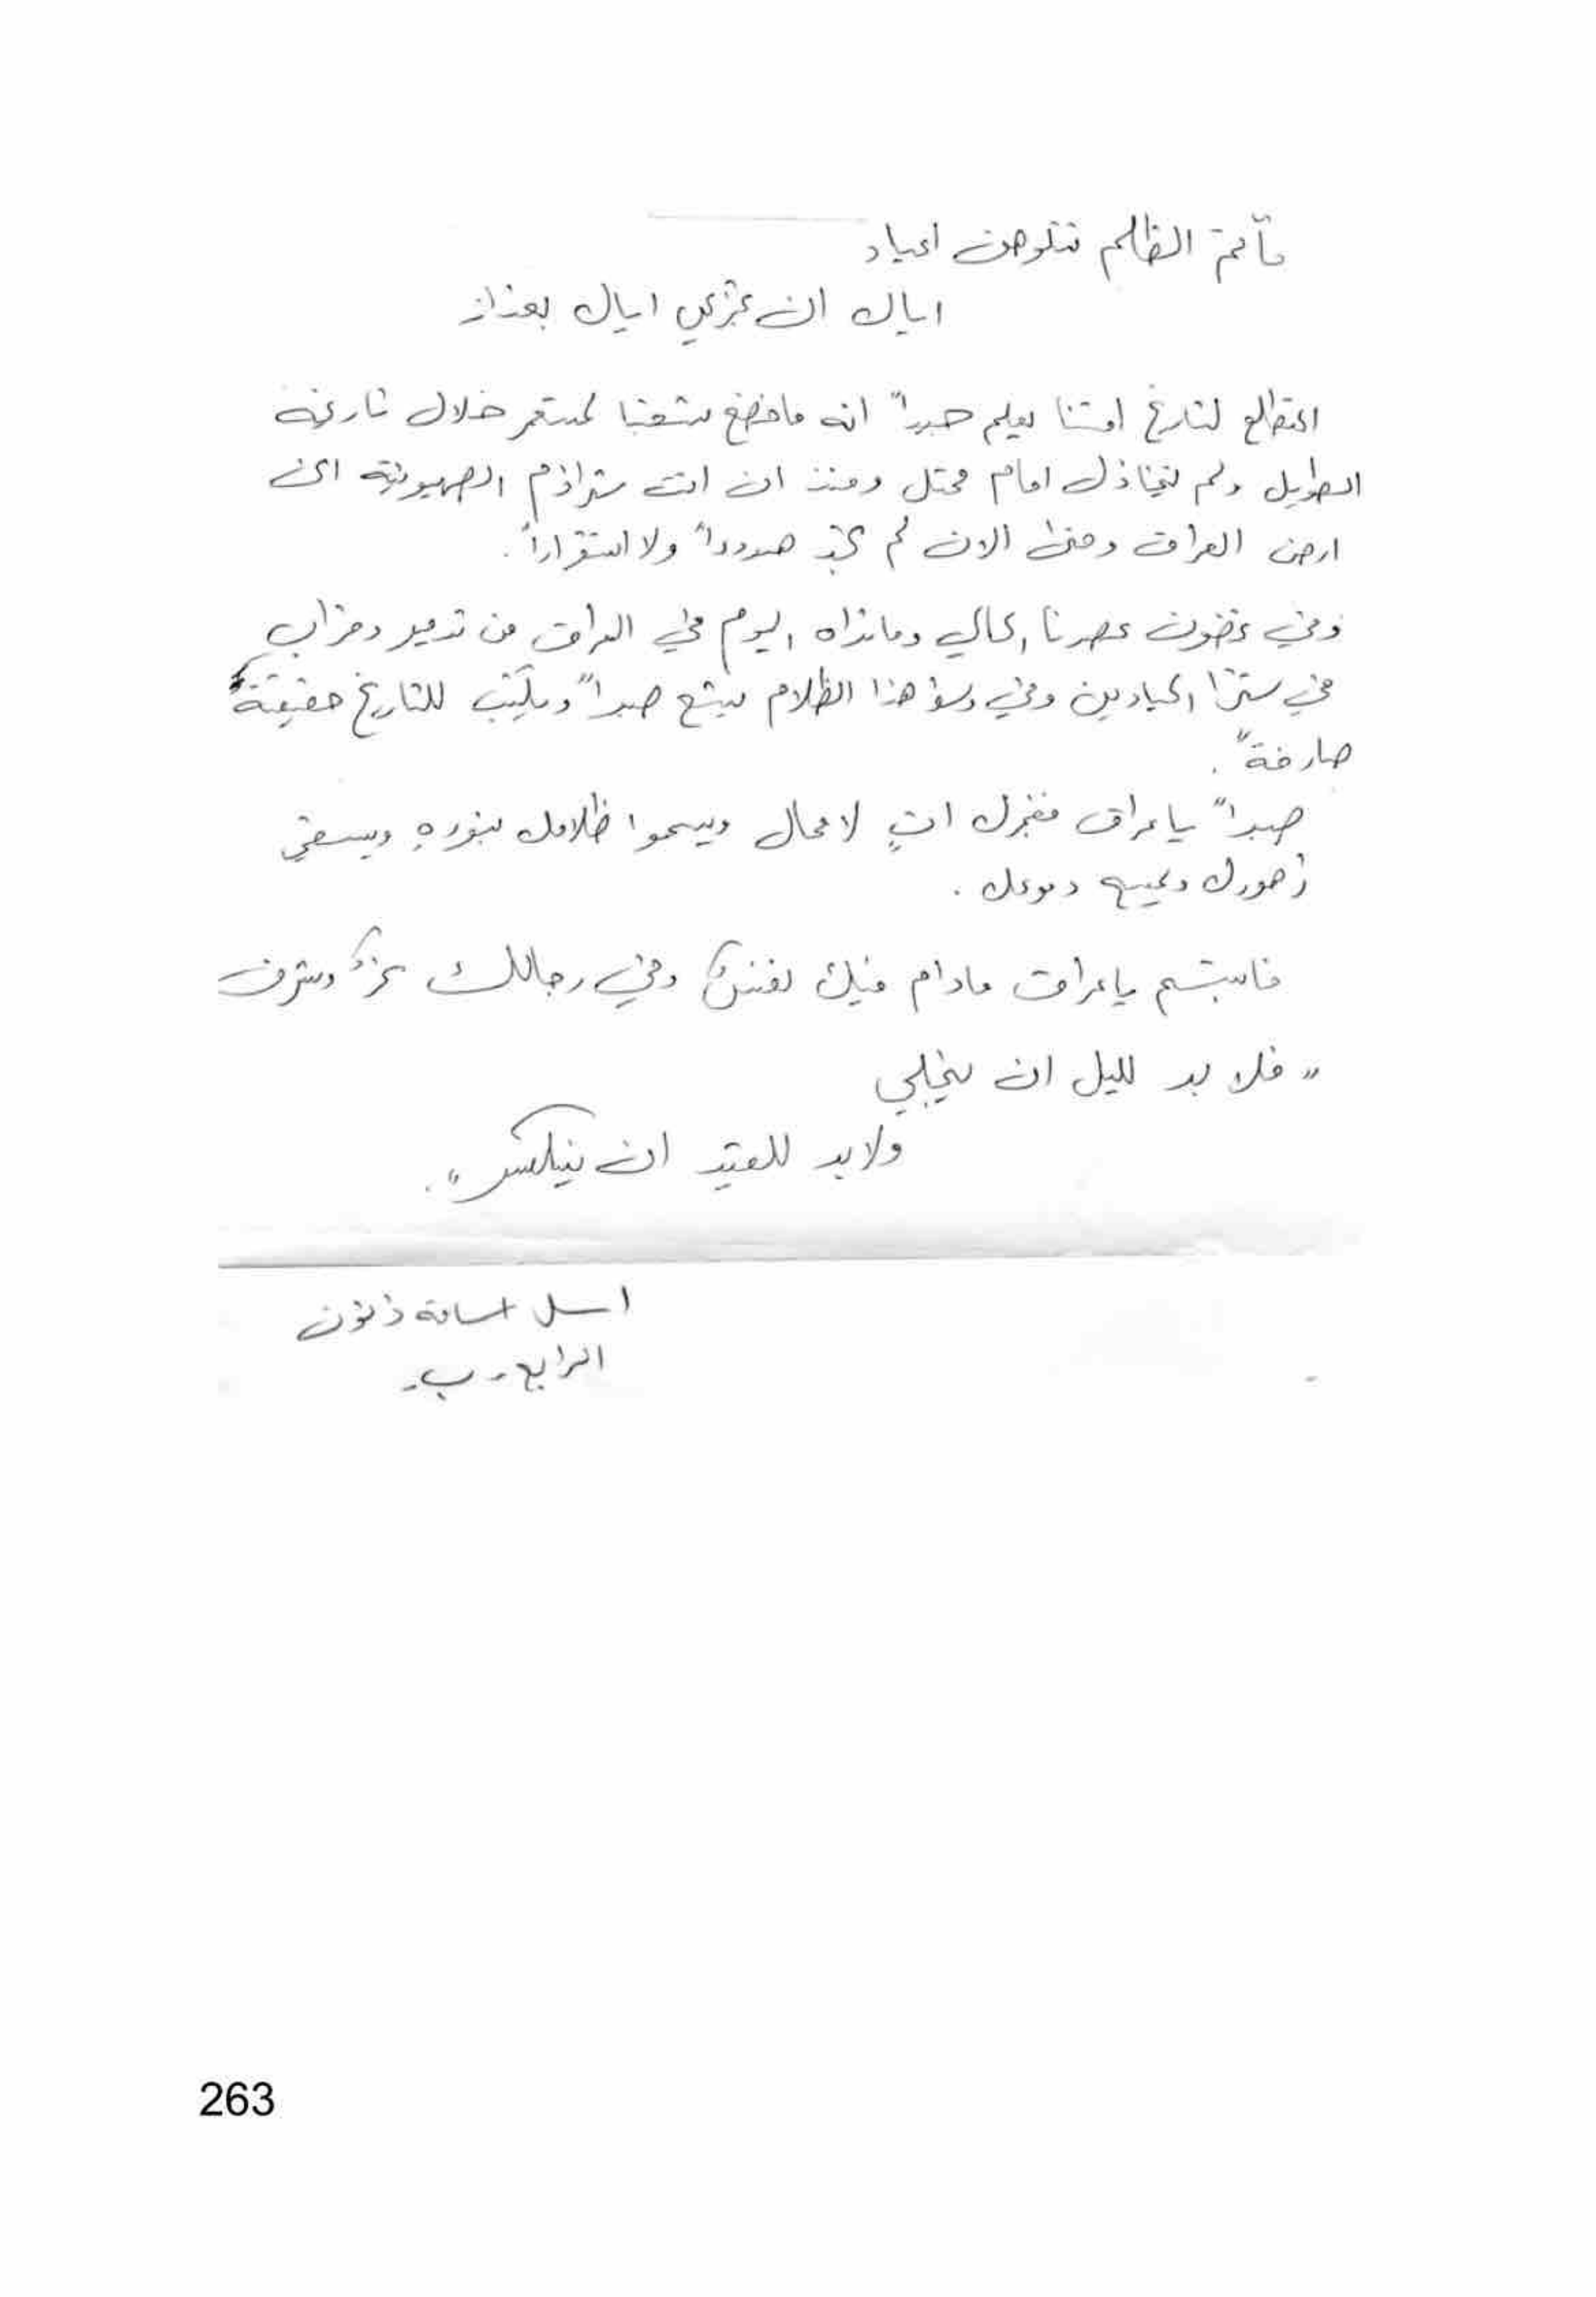 مآتمَ الظلم تتلوهن اعياد
اياك ان تجزعي اياك بغداد
المتطالع لتاريخ امتنا يعلم جيداً انه ماخضع شعبنا لمستعمر خلال تاريخه
الطويل ولم يتخاذل امام محتل ومنذ ان اتت شراذم الصهيونية الى
ارض العراق وحتى الان لم تجد هدوداً ولا استقراراً.
وفي غضون عصرنا الحالي ومانراه اليوم في العراق من تدمير وخراب
في شتى الميادين وفي وسط هذا الظلام يشع صبراً ويكتب للتاريخ حقيقةً
صارخةً.
صبراً ياعراق ففجرك اتٍ لا محال ويمحوا ظلامك بنوره ويسقي
زهورك ويمسح دموعك.
فابتسم ياعراق مادام فيك نفسٌ وفي رجالك عزٌ وشرف
"فلا بد لليل ان ينجلي
ولا بد للقيد ان ينكسر".
اسل اسامة ذنون
الرابع - ب -
263